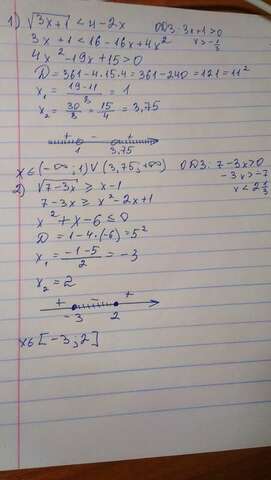 1) √3x+1 < 4-2x ОДЗ: 3x+1>0
x>-1/3
3x+1<16-16x+4x²
4x²-19x+15>0
D=361-4·15·4=361-240=121=11²
x₁=(19-11)/8=1
x₂=30/8=15/4=3,75
+ - +
1 3,75
x∈(-∞;1)∨(3,75;+∞) ОДЗ: 7-3x>0
-3x>-7
x<2 1/3
2) √7-3x ≥ x-1
7-3x≥x²-2x+1
x²+x-6≤0
D=1-4·(-6)=5²
x₁=(-1-5)/2=-3
x₂=2
+ +
-3 2
x∈[-3;2]